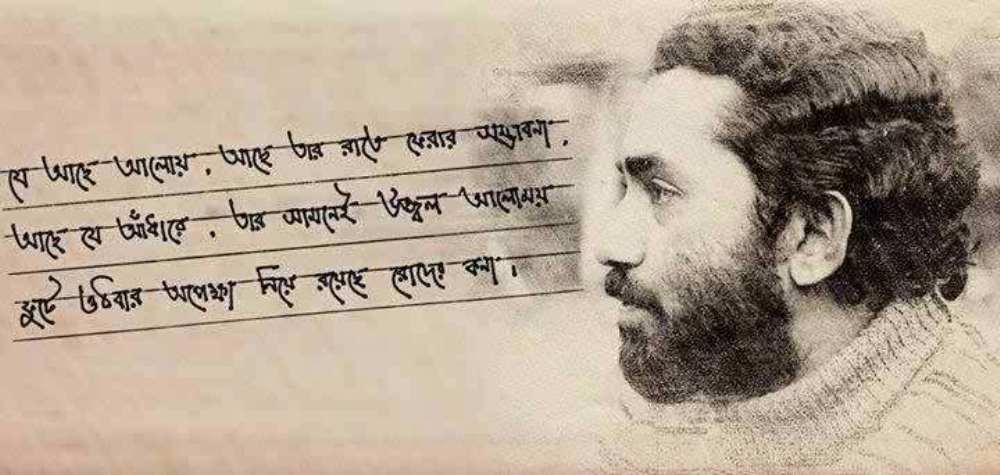 যে আছে আলোয়, আছে তার রাতে ফেরার সম্ভাবনা,
আছে যে আঁধারে, তার সামনেই উজ্বল আলোময়
ফুটে ওঠিবার অপেক্ষা নিয়ে রয়েছে রোদের কনা।